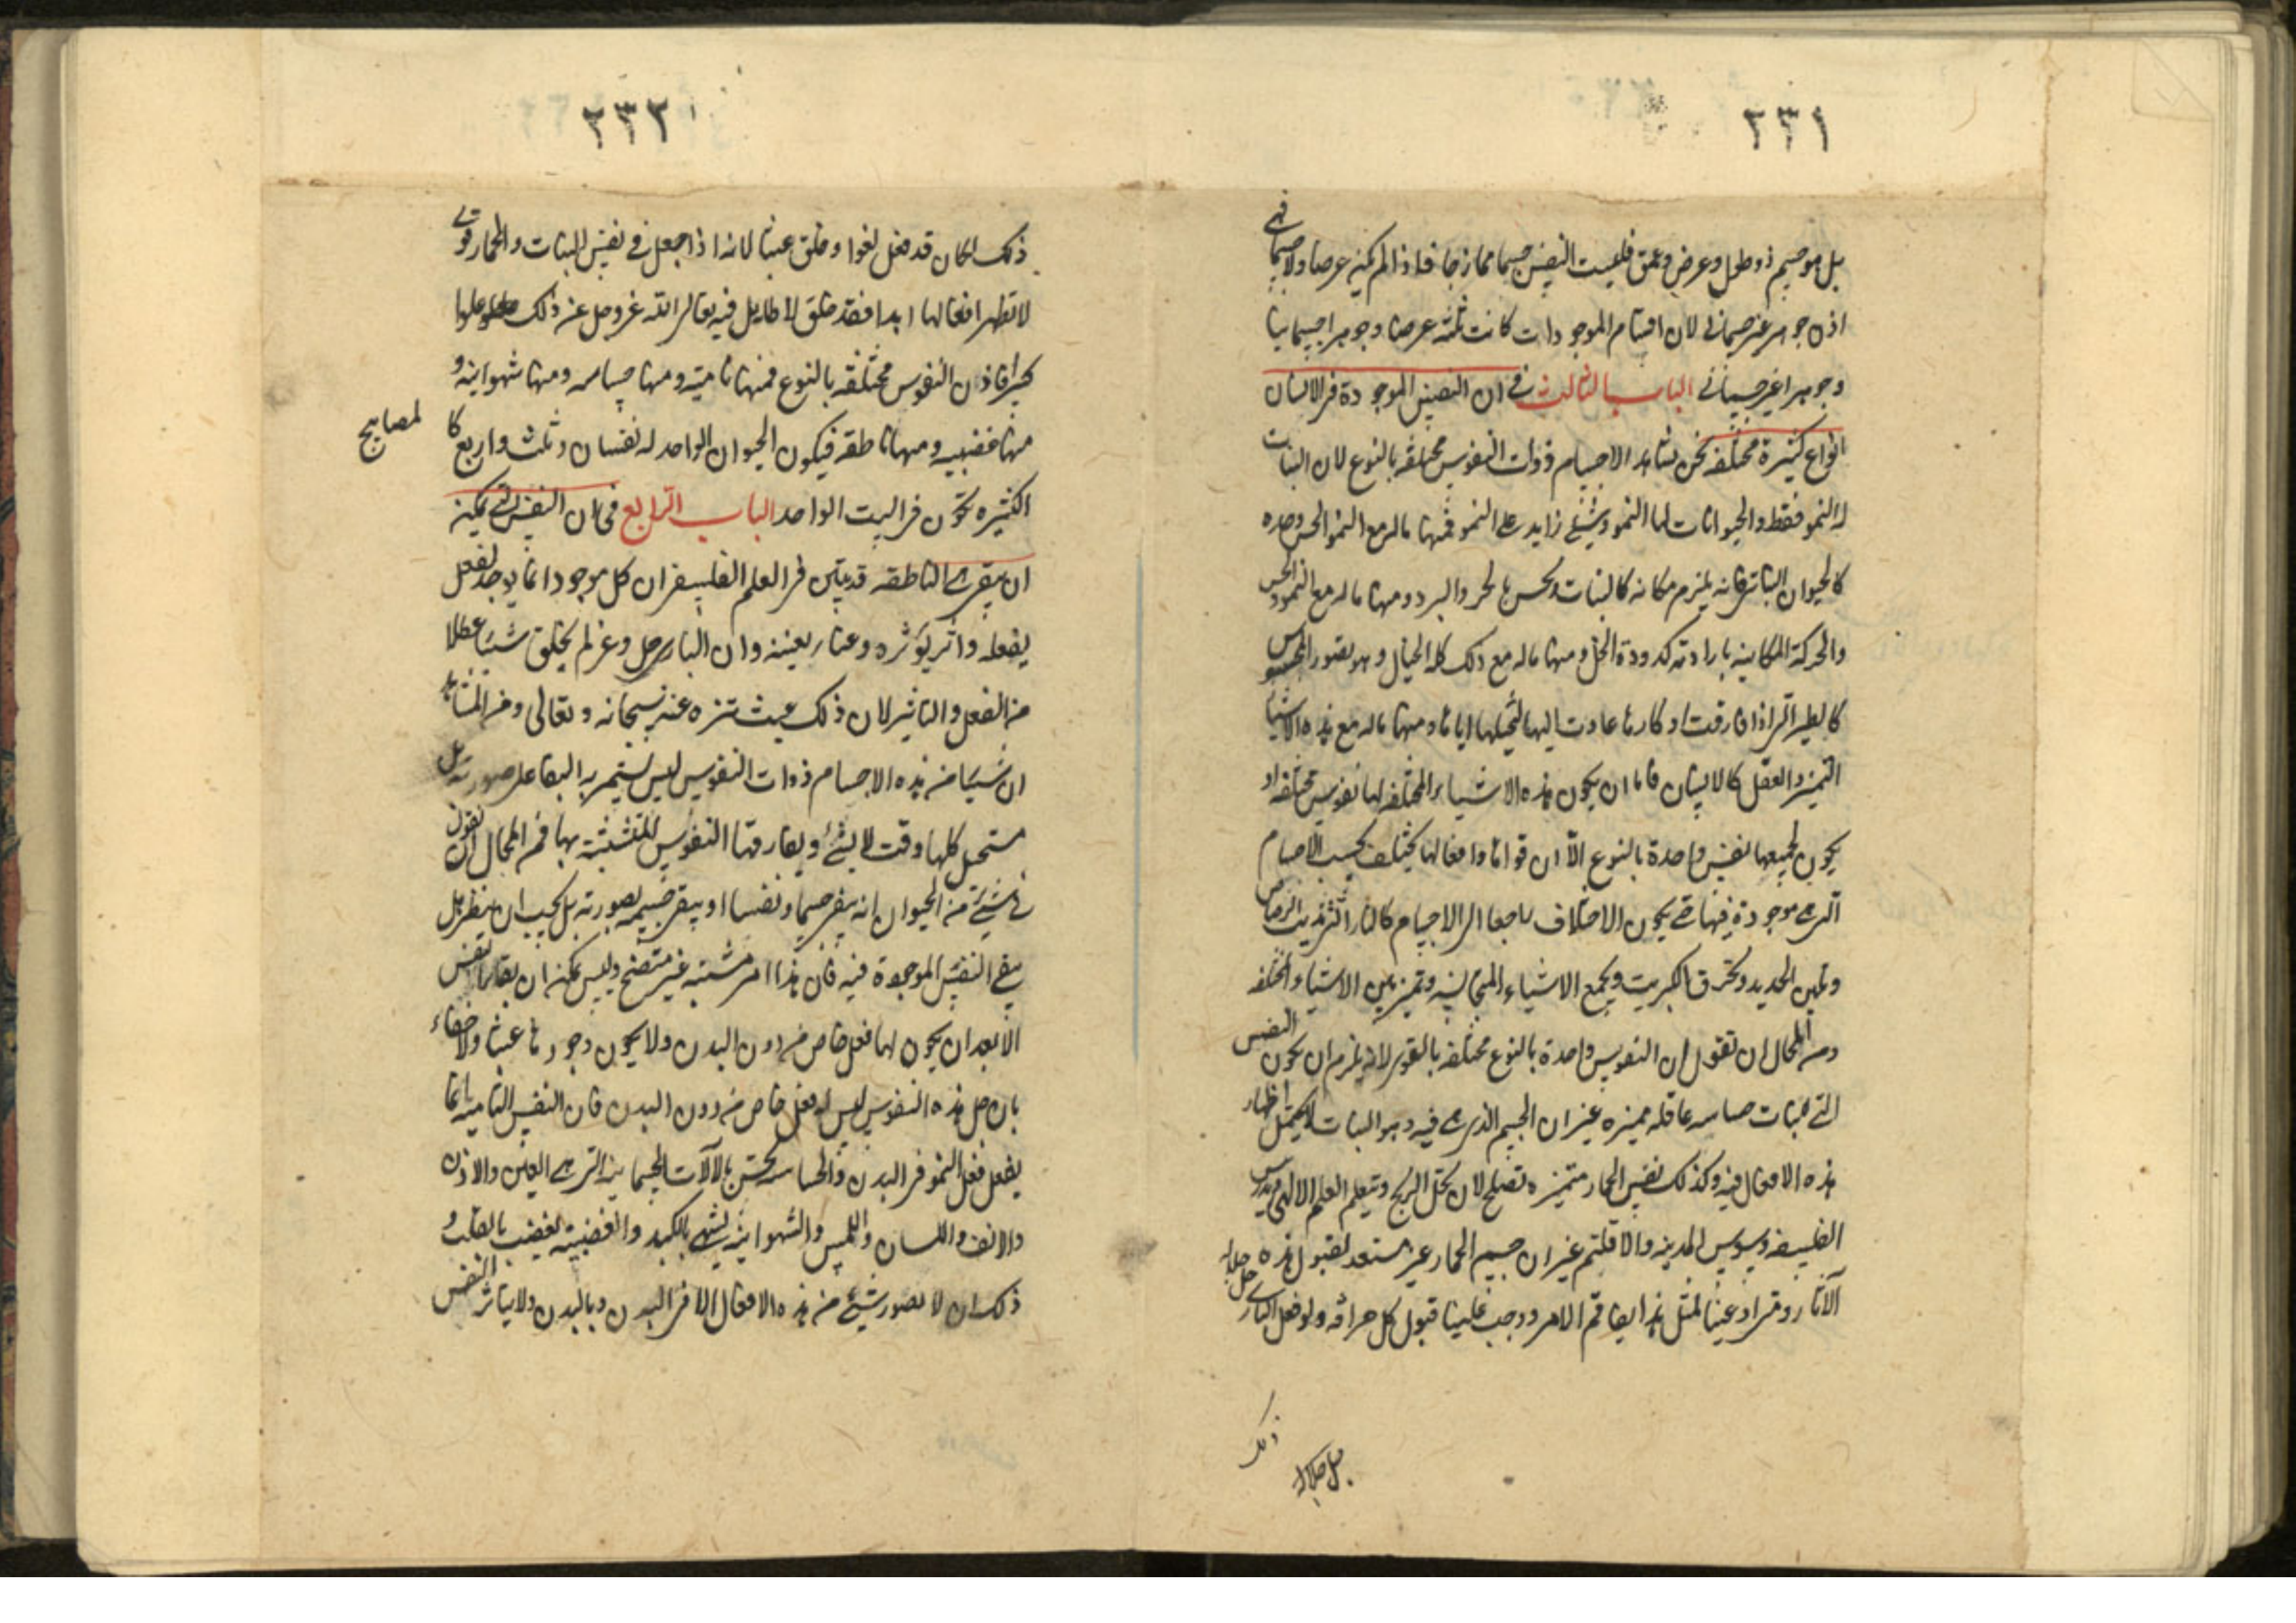 ٢٣١
بل هو جسم ذو طول وعرض وعمق فليست النفس جسما ممازجا فاذا لم تكن عرضا ولا جسما فهي
اذن جوهر غير جسماني لان اقسام الموجودات كانت ثلثة عرضا وجوهرا جسمانيا
وجوهرا غير جسماني الباب الثالث في ان النفس الموجودة في الانسان
انواع كثيرة مختلفة نحن نشاهد الاجسام ذوات النفوس مختلفة بالنوع لان النبات
له النمو فقط والحيوانات لها النمو وشيئ زايد على النمو فمنها ما له مع النمو الحس وحده
كالحيوان النباتي فانه يلزم مكانه كالنبات ويحس بالحر والبرد ومنها ما له مع النمو والحس
والحركة المكانية بارادته كدودة الخل ومنها ما له مع ذلك كله الخيال وهو تصور المحسوس
كالطير التي اذا فارقت اوكارها عادت اليها لتخيلها اياها ومنها ما له مع هذه الاشيا
التميز والعقل كالانسان فاما ان يكون هذه الاشياء المختلفة لها نفوس مختلفة او
يكون لجميعها نفس واحدة بالنوع الا ان قواها وافعالها يختلف بحسب الاجسام
التي هي موجودة فيها حتى يكون الاختلاف راجعا الى الاجسام كالنار التي تذيب الرصاص
وتلين الحديد وتحرق الكبريت ويجمع الاشياء المتجانسة وتميز بين الاشياء المختلفه
ومن المحال ان نقول ان النفوس واحدة بالنوع مختلفة بالقوى لانه يلزم ان يكون النفس
التي للنبات حساسه عاقله مميزه غير ان الجسم الذي هي فيه وهو النبات لا يحتمل اظهار
هذه الافعال فيه وكذلك نفس الحمار متميزه تصلح لان تحل الزيج وتتعلم العلم الالهي ويدرس
الفلسفه ويسوس المدينه والاقليم غير ان جسم الحمار غير مستعد لقبول هذه
الآثار ومتى ادعينا لمثل هذا ايضا تم الامر ووجب علينا قبول كل خرافه ولو فعل الباري جل جلاله
ذلك
جل جلاله
٢٣٢
ذلك لكان قد فعل لغوا وخلق عبثا لانه اذا جعل في نفس النبات والحمار قوى
لا تظهر افعالها ابدا فقد خلق لا طايل فيه تعالى الله عز وجل عن ذلك علوا
كبيرا فاذن النفوس مختلفه بالنوع فمنها نامية ومنها حساسه ومنها شهوانيه و
منها غضبيه ومنها ناطقه فيكون الحيوان الواحد له نفسان وثلث واربع كا
لمصابيح
الكثيره تكون في البيت الواحد الباب الرابع في ان النفس التي يمكن
ان يبقى هي الناطقه قد تبين في العلم الفلسفي ان كل موجود انما يوجد لفعل
يفعله واثر يؤثره وعناية يعنيه وان الباري جل وعز لم يخلق شيئا عطلا
من الفعل والتاثير لان ذلك عبث تنزه عنه سبحانه وتعالى ومن المشاهد
ان شيئا من هذه الاجسام ذوات النفوس ليس يستمر به البقا على صورته بل
مستحيل كلها وقت لا يشئ ويفارقها النفوس المتشبثة بها فمن المحال ان نقول
في شيئ من الحيوان انه يبقى جسما ونفسا او يبقى جسمه بصورته بل يجب ان ينظر هل
يبقى النفس الموجودة فيه فان هذا امر مشتبه غير متضح وليس يمكن ان بقا النفس
الا بعد ان يكون لها فعل خاص من دون البدن ولا يكون وجودها عبثا ولا خفاء
بان جل هذه النفوس ليس له فعل خاص من دون البدن فان النفس الناميه انما
يفعل فعل النمو في البدن والحساسه تحس بالآلات الجسمانية التي هي العين والاذن
والانف واللسان واللمس والشهوانية تشتهي بالكبد والغضبيه تغضب بالقلب و
ذلك ان لا يصور شيئ من هذه الافعال الا في البدن وبالبدن ولا يتاثر النفس